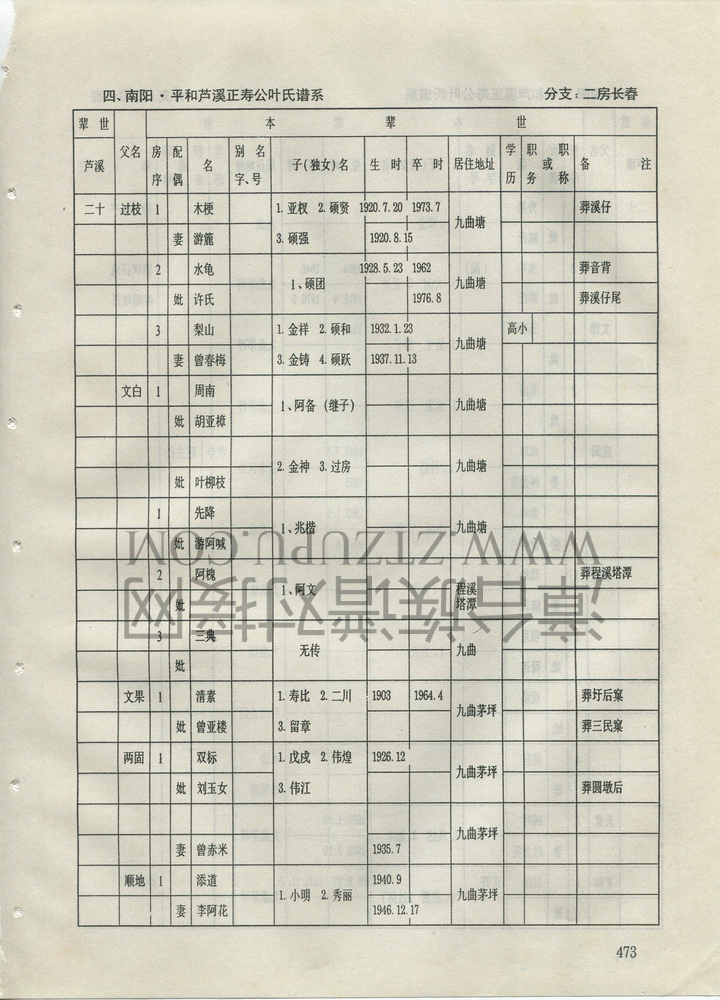 四、南阳·平和芦溪正寿公叶氏谱系 分支：二房长春
辈世 本辈世
芦溪 父名 房序 配偶 名 别名字、号 子(独女)名 生时 卒时 居住地址 学历 职务或职称 备注
二十 过枝 1 木梗 1.亚权 2.硕贤 1920.7.20 1973.7 九曲塘 葬溪仔
妻 游簏 3.硕强 1920.8.15
2 水龟 1、硕团 1928.5.23 1962 九曲塘 葬音背
妣 许氏 1976.8 葬溪仔尾
3 梨山 1.金祥 2.硕和 1932.1.23 九曲塘 高小
妻 曾春梅 3.金铸 4.硕跃 1937.11.13
文白 1 周南 1、阿备(继子) 九曲塘
妣 胡亚樟
2.金神 3.过房 九曲塘
妣 叶柳枝
1 先降 1、兆楷 九曲塘
妣 游阿喊
2 阿槐 1、阿文 程溪塔潭 葬程溪塔潭
妣
3 三典 无传 九曲
妣
文果 1 清素 1.寿比 2.二川 1903 1964.4 九曲茅坪 葬圩后窠
妣 曾亚楼 3.留章 葬三民窠
两固 1 双标 1.戊戌 2.伟煌 1926.12 九曲茅坪
妣 刘玉女 3.伟江 葬圆墩后
九曲茅坪
妻 曾赤米 1935.7
顺地 1 添道 1.小明 2.秀丽 1940.9 九曲茅坪
妻 李阿花 1946.12.17
WWW.ZTZUPU.COM
漳台族谱对接网
473